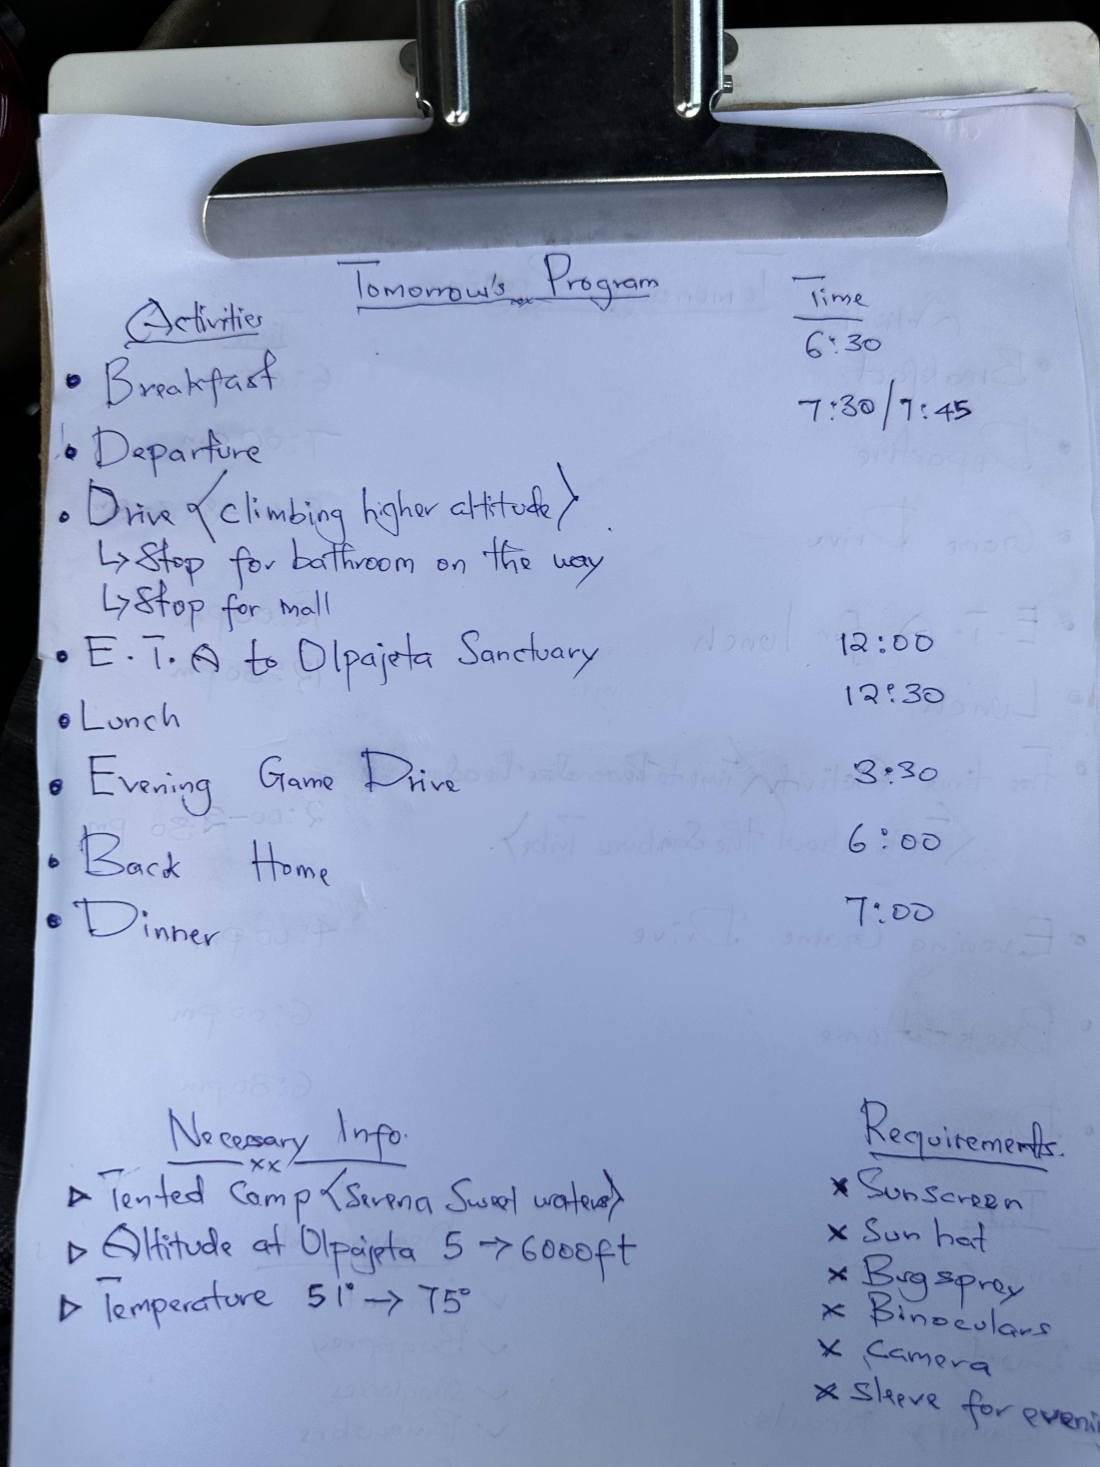 Tomorrow's Program
Activities
Time
6:30
• Breakfast
7:30/7:45
• Departure
• Drive <climbing higher altitude>
↳ Stop for bathroom on the way
↳ Stop for mall
• E.T.A to Olpajeta Sanctuary 12:00
• Lunch 12:30
• Evening Game Drive 3:30
• Back Home 6:00
• Dinner 7:00
Necessary Info.
xx
▷ Tented Camp <Serena Sweet waters>
▷ Altitude at Olpajeta 5 → 6000ft
▷ Temperature 51° → 75°
Requirements.
× Sunscreen
× Sun hat
× Bug sprey
× Binoculars
× Camera
× Sleeve for eveni